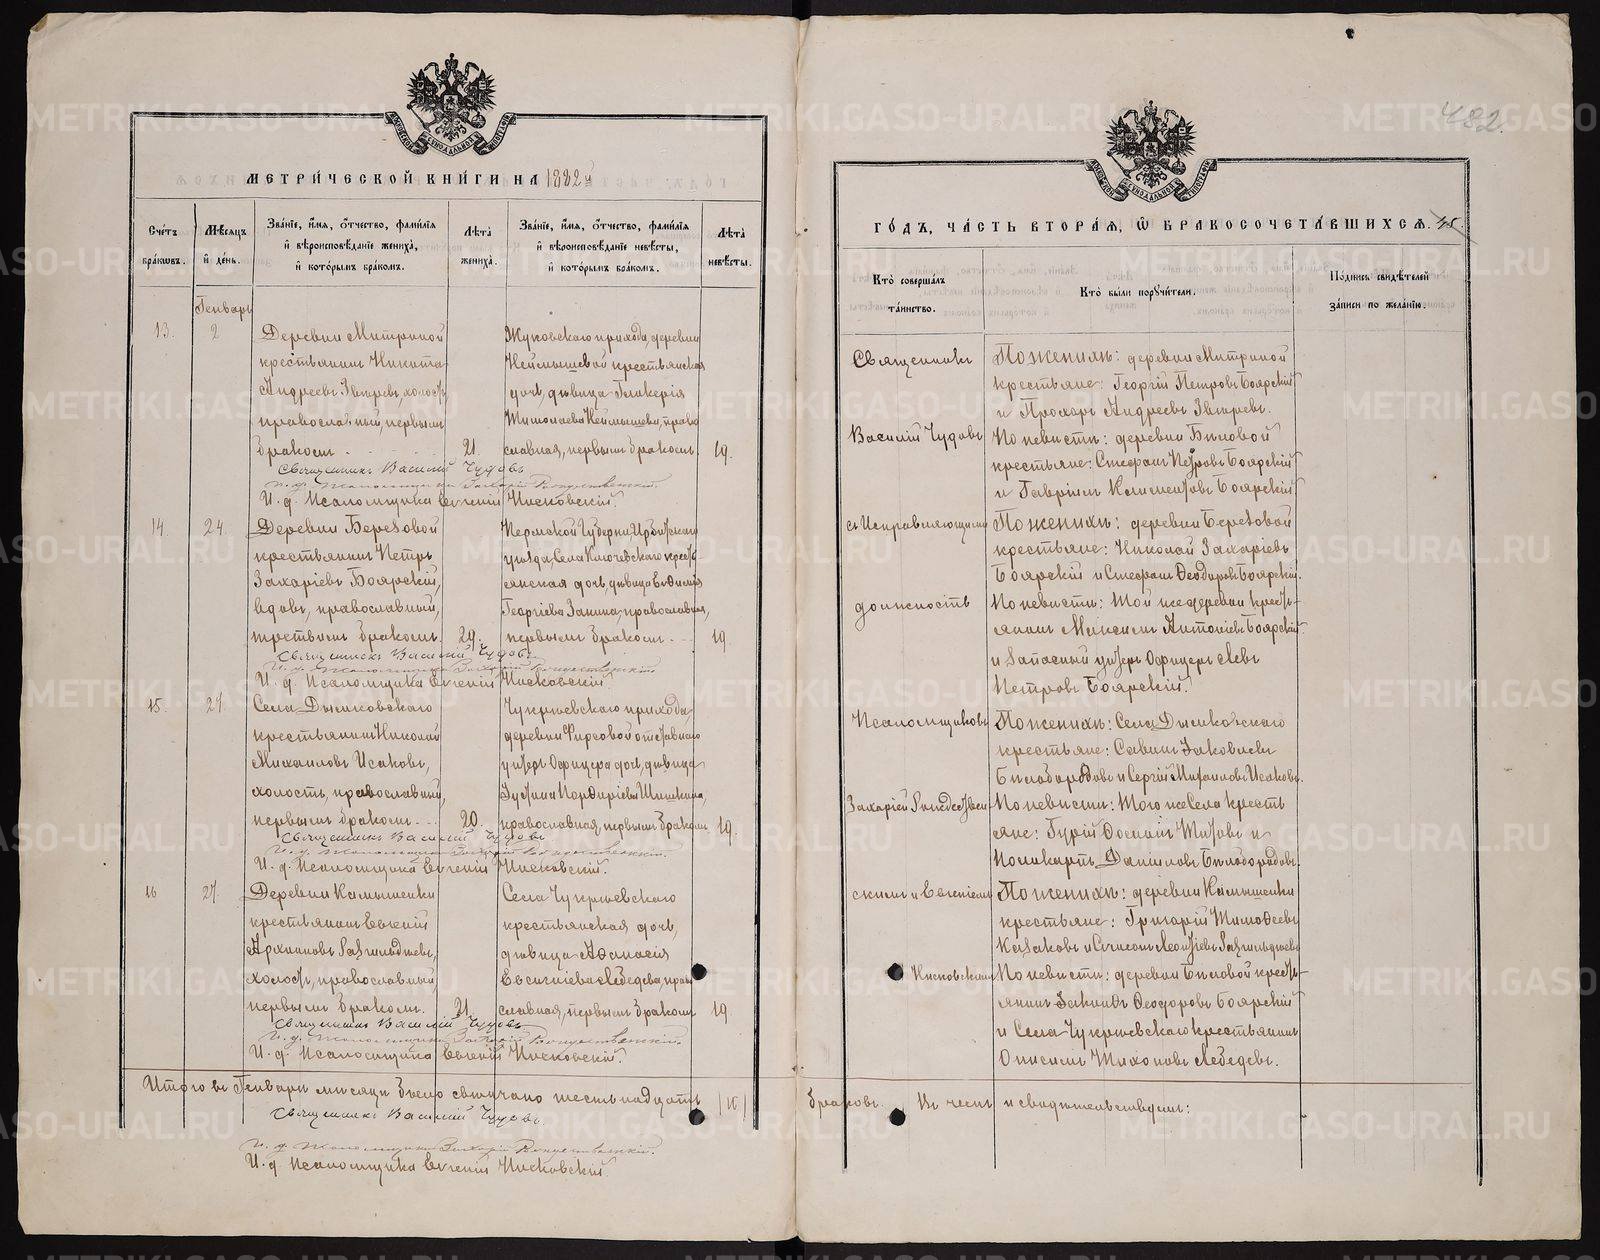 482.
МЕТРИ́ЧЕСКОЙ КНИ́ГИ НА 1882й
Сче́тъ бра́кѡвъ.
Мѣ́сяцъ и҆ де́нь.
Зва́нїе, и҆́мя, ѻ҆́тчество, фами́лїя
и҆ вѣроисповѣ́данїе жениха̀,
и҆ кото́рымъ бра́комъ.
Лѣ́та̀ жениха̀.
Зва́нїе, и҆́мя, ѻ҆́тчество, фами́лїя
и҆ вѣроисповѣ́данїе невѣ́сты,
и҆ кото́рымъ бра́комъ.
Лѣ́та̀ невѣ́сты.
Генварь
13.
2
Деревни Митриной
крестьянинъ Никита
Андреевъ Звѣревъ, холостъ,
православный, первымъ
бракомъ
21.
Жуковскаго прихода, деревни
крестьянская
дочь, дѣвица Гликерія
право
славная, первымъ бракомъ
19.
Священникъ Василій Чудовъ
И. д. Псаломщика Захарій Рождественскій.
И. д. Псаломщика Евгеній Нисковскій.
14.
24.
Деревни Березовой
крестьянинъ Петръ
Захаріевъ Боярскій,
вдовъ, православный,
третьимъ бракомъ.
29.
Пермской Губерніи Ирбитскаго
уѣзда, Села Ключевскаго кресть-
янская дочь дѣвица Евфимія
Георгіева Занина, православная,
первымъ бракомъ
19.
Священникъ Василій Чудовъ.
И. д. Псаломщика Захарій Рождественскій
И. д. Псаломщика Евгеній Нисковскій.
15.
27.
Села Дымковскаго
крестьянинъ Николай
Михаиловъ Исаковъ,
холостъ, православный,
первымъ бракомъ
20.
Чукреевскаго прихода,
деревни Фирсовой отставнаго
унтеръ Офицера дочь, дѣвица
Іустина Порфиріева Шишкина,
православная, первымъ бракомъ,
19.
Священникъ Василій Чудовъ
И. д. Псаломщика Захарій Рождественскій.
И. д. Псаломщика Евгеній Нисковскій.
16
27.
Деревни Камышенки
крестьянинъ Евгеній
Архиповъ Разгильдѣевъ,
холостъ, православный,
первымъ бракомъ.
21.
Села Чукреевскаго
крестьянская дочь,
дѣвица Афанасія
Евсигніева Лебедева, право
славная, первымъ бракомъ
19
Священникъ Василій Чудовъ
И. д. Псаломщика Захарій Рождественскій.
И. д. Псаломщика Евгеній Нисковскій.
Итого въ Генварѣ мѣсяцѣ было вѣнчано шестьнадцать /16/
Священникъ Василій Чудовъ.
И. д. Псаломщика Захарій Рождественскій.
И. д. Псаломщика Евгеній Нисковскій.
ГО́ДЪ, ЧА́СТЬ ВТОРА́Я, Ѡ҆ БРАКОСОЧЕТА́ВШИХСЯ.
Кто̀ соверша́лъ та́инство.
Кто̀ бы́ли порꙋчи́тели.
По́дпись свидѣ́телей за́писи по жела́нїю.
Священникъ
Василій Чудовъ
съ Исправляющими
должность
Псаломщиковъ
Захаріемъ Рождествен
скимъ и Евгеніемъ
Нисковскимъ
По женихѣ: деревни Митриной
крестьяне: Георгій Петровъ Боярскій
и Прохоръ Андреевъ Звѣревъ.
По невѣстѣ: деревни Бѣловой
крестьяне: Стефанъ Петровъ Боярскій
и Гавріилъ Климентовъ Боярскій
По женихѣ: деревни Березовой
крестьяне: Николай Захаріевъ
Боярскій и Стефанъ Ѳеодоровъ Боярскій.
По невѣстѣ: той же деревни кресть-
янинъ Максимъ Антоніевъ Боярскій
и запасный унтеръ Офицеръ Левъ
Петровъ Боярскій.
По женихѣ: Села Дымковскаго
крестьяне: Савинъ Іаковлевъ
Бѣлобородовъ и Сергій Михаиловъ Исаковъ.
По невѣстѣ: того же Села кресть
яне: Гурій Титовъ и
Поликарпъ Даніиловъ Бѣлобородовъ.
По женихѣ: деревни Камышенки
крестьяне: Григорій Тимоѳеевъ
Казаковъ и Леонтіевъ Разгильдѣевъ
По невѣстѣ: деревни Бѣловой кресть-
янинъ Ѳеодоровъ Боярскій
и Села Чукреевскаго крестьянинъ
Онисимъ Тихоновъ Лебедевъ.
браковъ. Въ чемъ и свидѣтельствуемъ:
METRIKI.GASO-URAL.RU